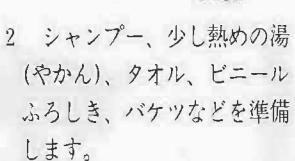 2　シャンプー、少し熱めの湯
(やかん)、タオル、ビニール
ふろしき、バケツなどを準備
します。